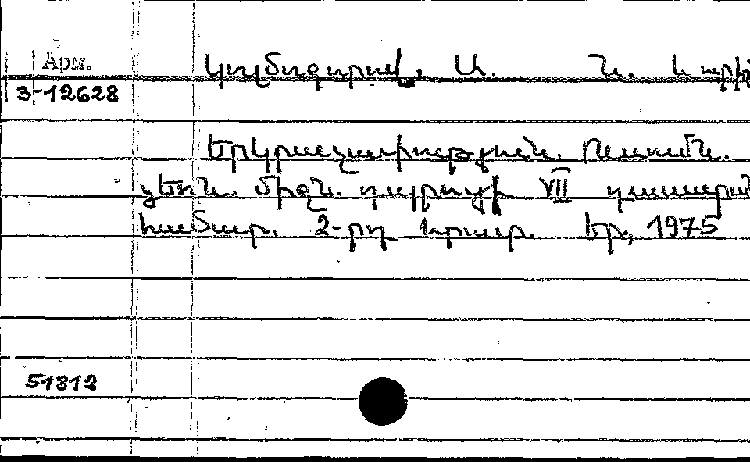 Арм.
3-12628
Կոլմոգորով, Ա. Ն. և ուրիշ
Երկրաչափություն. Ուսումն.
ձեռն. միջն. դպրոցի VII դասարանի
համար. 2-րդ հրատ. Եր., 1975
51812